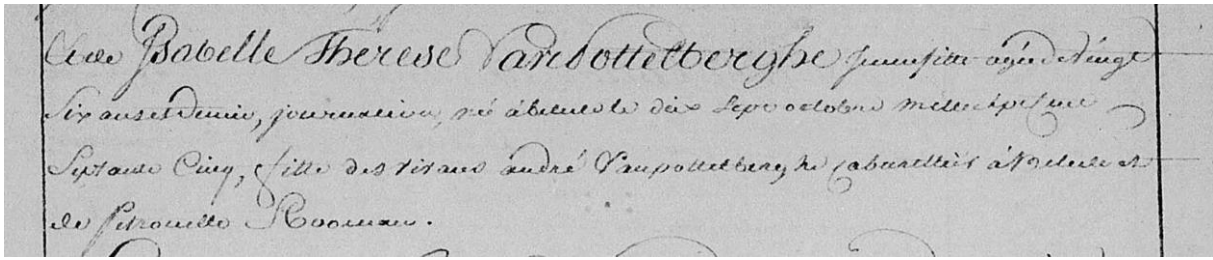 Et de Isabelle Therese Vanpottelberghe jeunefille agée de Vingt
Six ans et Demie, journaliere, né à le dix Sept octobre mille Sept Cent
Septante Cinq, fille des vivans andré Vanpottelberghe Cabarettier à et
de Petronille Rooman.